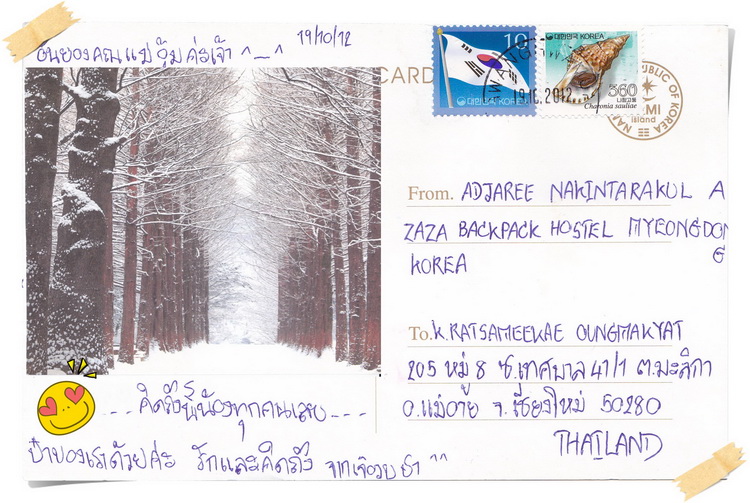 19/10/12
CARD
10
대한민국 KOREA
대한민국 KOREA
360
나팔고둥
Charonia sauliae
19.10.2012
REPUBLIC OF KOREA
island
From. ADJAREE NAKINTARAKUL A
ZAZA BACKPACK HOSTEL MYEONGDON
G
KOREA
To. K.RATSAMEEKAE OUNGMAKYAT
205 หมู่ 8 ซ.เทศบาล 41/1 ต.มะลิกา
อ.แม่อาย จ.เชียงใหม่ 50280
THAILAND
---คิดถึงพี่น้องทุกคนเลย---
ด้วยค่ะ รักและคิดถึง